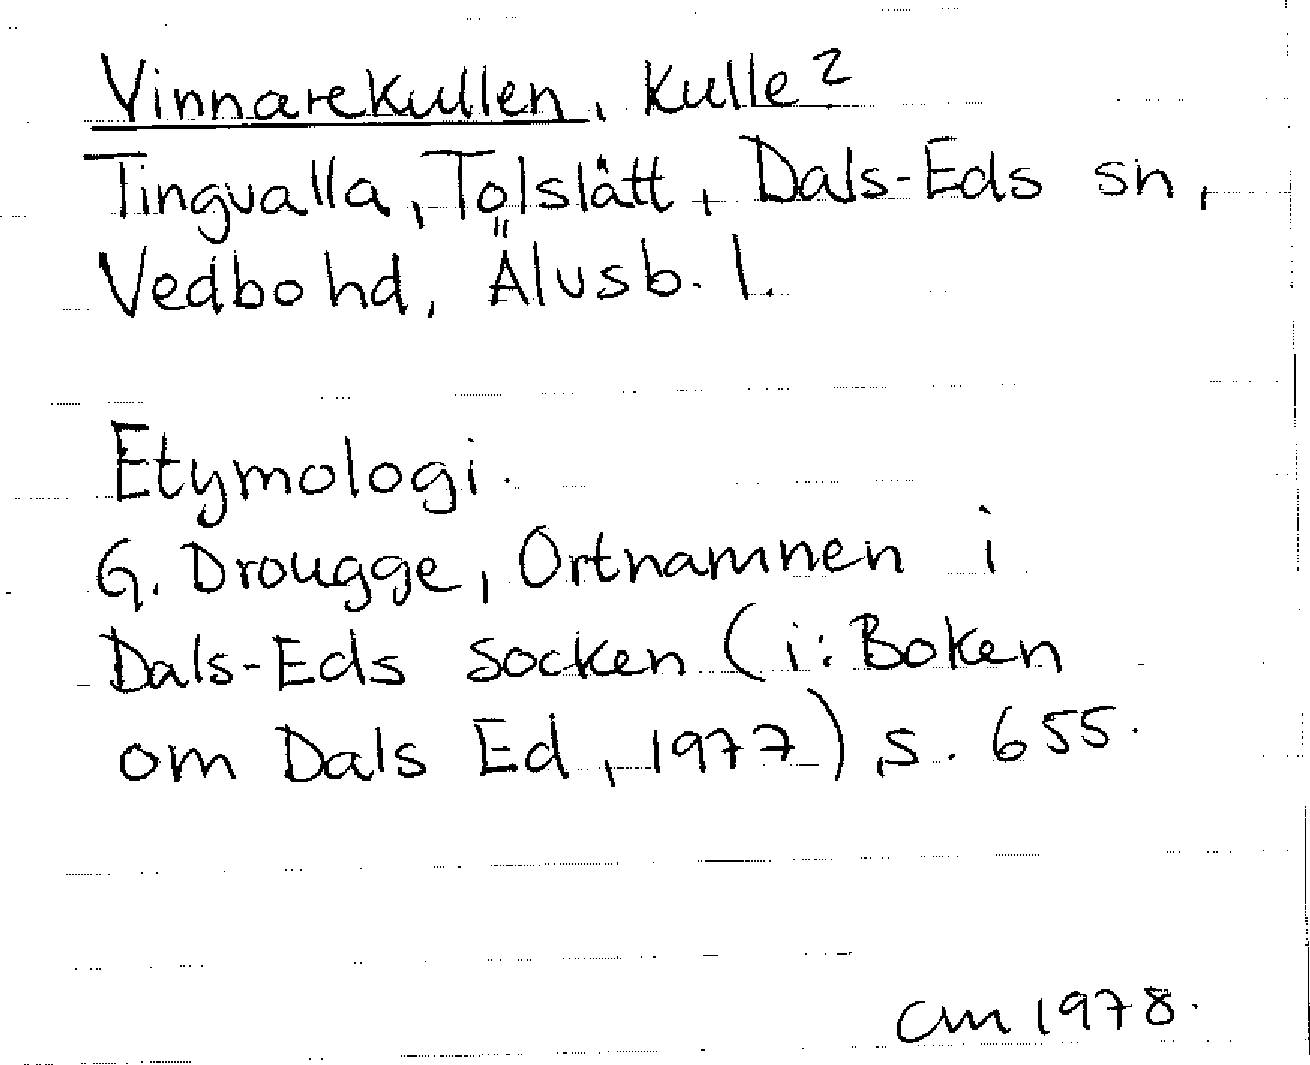 Vinnarekullen, kulle?
Tingvalla, Tolslätt, Dals-Eds sn,
Vedbo hd, Älvsb. l.
Etymologi.
G. Drougge, Ortnamnen i
Dals-Eds socken (i: Boken
om Dals Ed, 1977), s. 655.
CM 1978.